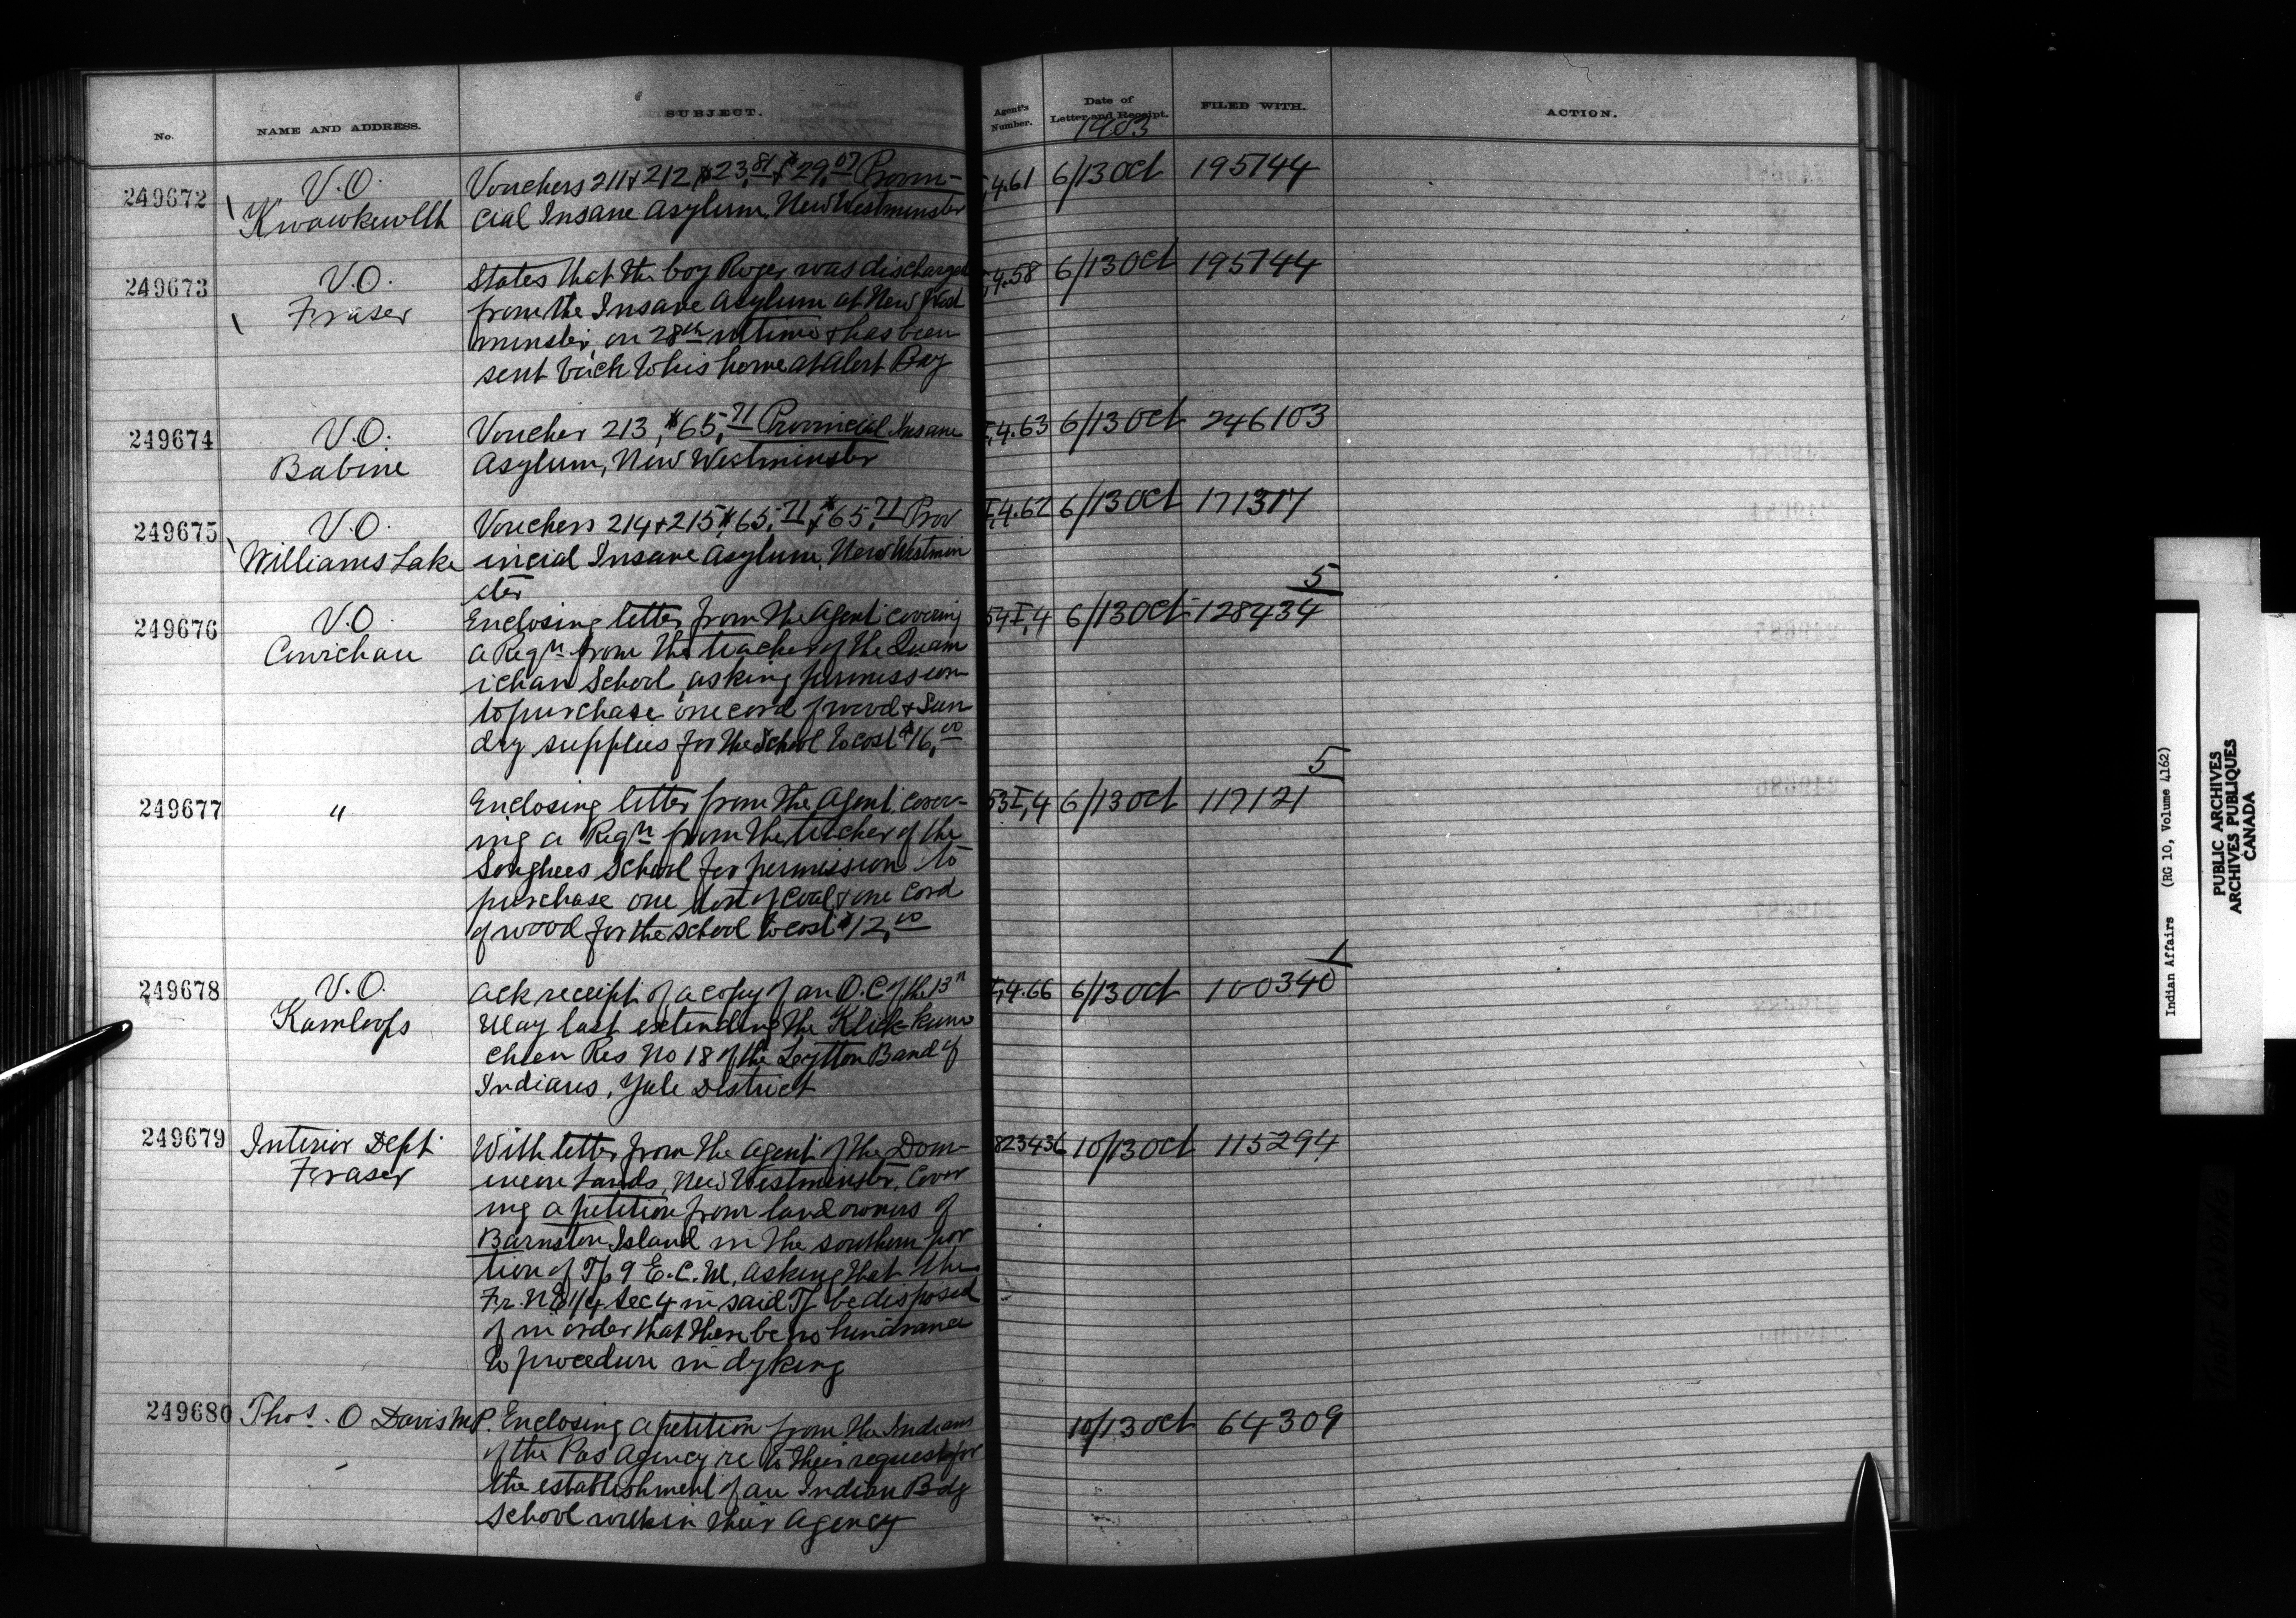 No.
NAME AND ADDRESS.
SUBJECT.
Agent's Number.
Date of Letter and Receipt.
FILED WITH.
ACTION.
1903
249672
V.O.
Kwawkewlth
Vouchers 211 & 212, $23.81 & $29.07 Provin-
cial Insane Asylum, New Westminster
4.61 6/13 Oct 195744
249673
V.O.
Fraser
States that the boy Roger was discharged
from the Insane Asylum at New West
minster, on 28th ultimo & has been
sent back to his home at Alert Bay
4.58 6/13 Oct 195744
249674
V.O.
Babine
Voucher 213, $65.71 Provincial Insane
Asylum, New Westminster
I,4.63 6/13 Oct 246103
249675
V.O.
Williams Lake
Vouchers 214 & 215 $65.71 & $65.71 Prov
incial Insane Asylum, New Westmin
ster
I,4.62 6/13 Oct 171317
249676
V.O.
Cowichan
Enclosing letter from the Agent covering
a Reqn from the teacher of the Quam
ichan School, asking permission
to purchase one cord of wood & sun
dry supplies for the School to cost $16.00
54 I,4 6/13 Oct 128434
5
249677
"
Enclosing letter from the Agent cover-
ing a Reqn from the teacher of the
Songhees School for permission to
purchase one ton of coal & one cord
of wood for the school to cost $12.00
53 I,4 6/13 Oct 117121
5
249678
V.O.
Kamloops
Ack receipt of a copy of an O.C. of the 13n
May last extending the Klick-kum
cheen Res No 18 of the Lytton Band of
Indians, Yale District
I,4.66 6/13 Oct 100340
1
249679
Interior Dept
Fraser
With letter from the Agent of the Dom-
inion Lands, New Westminster, cover
ing a petition from land owners of
Barnston Island in the southern por
tion of Tp 9 E.C.M. asking that the
Fr. NE 1/4 Sec 4 in said Tp be disposed
of in order that there be no hindrance
to procedure in dyking
823436 10/13 Oct 115294
249680
Thos. O Davis M.P.
Enclosing a petition from the Indians
of the Pas Agency re to their request for
the establishment of an Indian Bdg
School within their Agency
10/13 Oct 64309
Indian Affairs (RG 10, Volume 4162)
PUBLIC ARCHIVES
ARCHIVES PUBLIQUES
CANADA